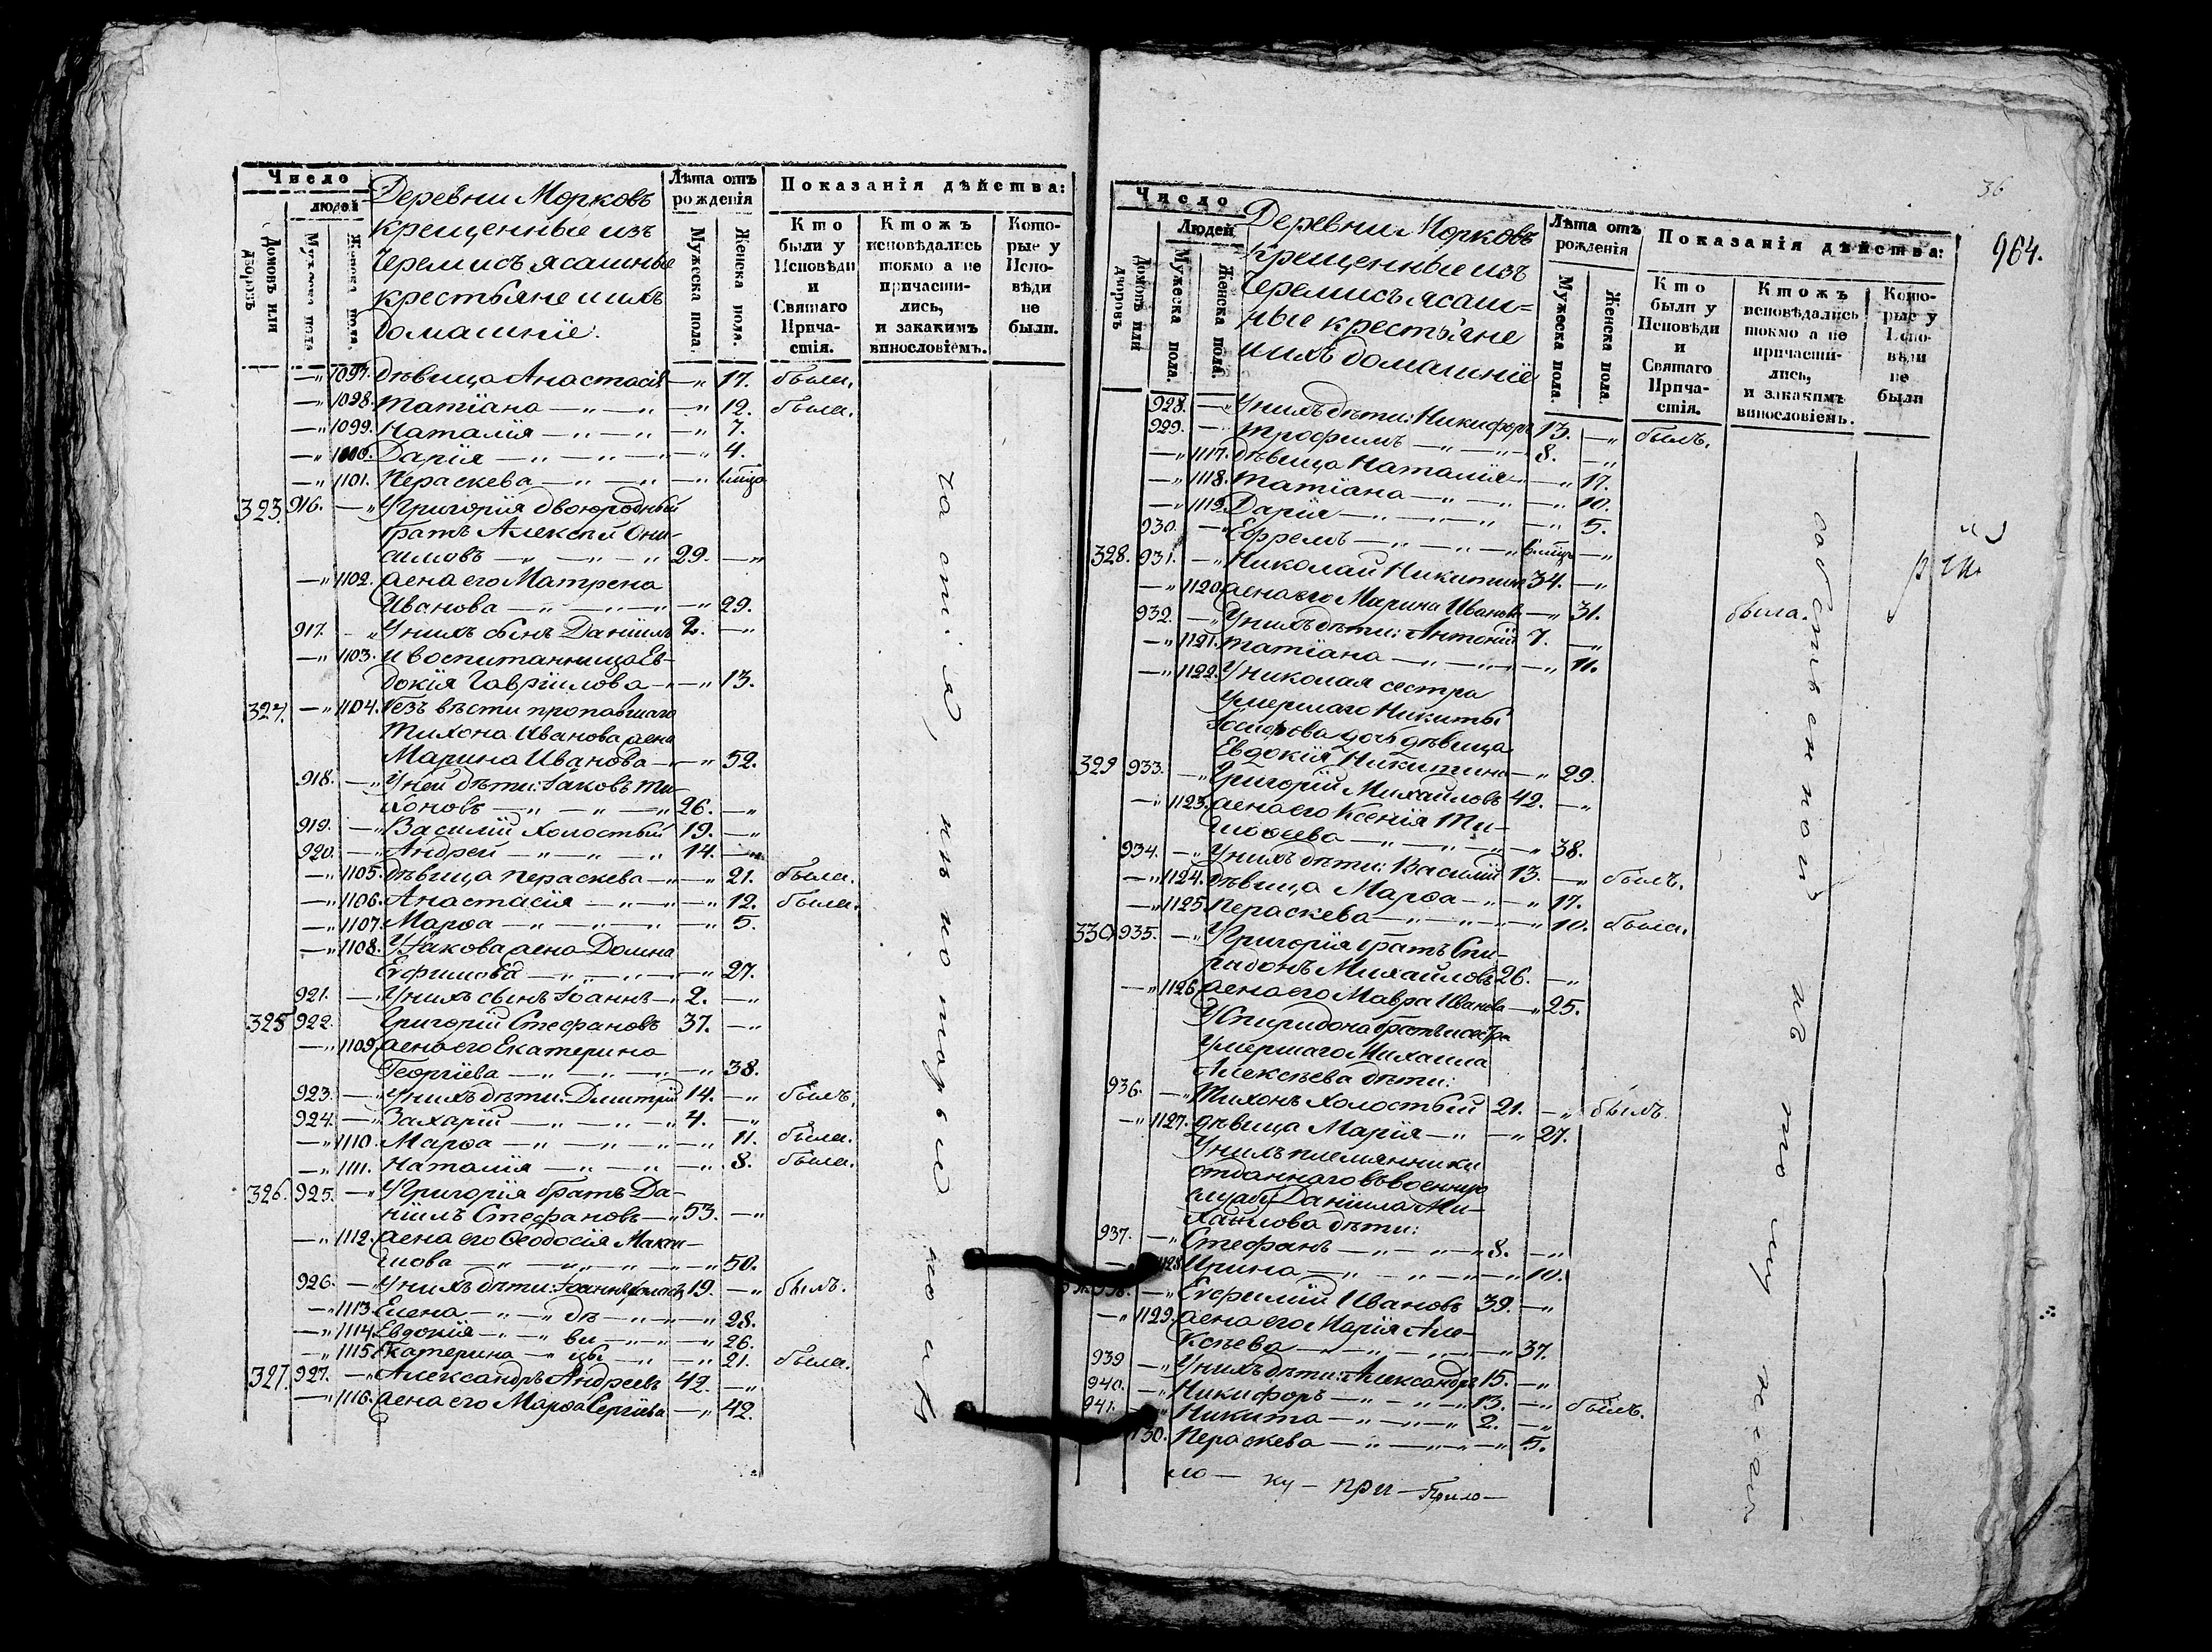 Число
людей
Домовъ или дворовъ
Мужеска пола
Женска пола.
Деревни Морковъ
крещенные изъ
Черемисъ ясашные
крестьяне и ихъ
домашніе.
Лѣта отъ рожденія
Мужеска пола.
Женска пола.
Показанія дѣйства:
Кто были у Исповѣди и Святаго Причастія.
Ктожъ исповѣдались токмо а не причастились, и закакимъ винословіемъ.
Которые у Исповѣди не были.
—„ 1097. дѣвица Анастасія —„ 17. была.
—„ 1098. Татіана —„—„ —„ 12. была.
—„ 1099. Наталія —„—„ —„ 7.
—„ 1100. Дарія —„—„— —„ 4.
—„ 1101. Пераскева —„—„ —„
323. 916. —„ У Григорія двоюродный
братъ Алексѣй Они-
симовъ —„—„—„ 29. —„
—„ 1102. жена его Матрена
Иванова —„—„— —„ 29.
917. —„ У нихъ сынъ Даніилъ 2. —„
—„ 1103. и воспитанница Ев-
докія Гавріилова —„ —„ 13.
324. —„ 1104. Безъ вѣсти пропавшаго
Тихона Иванова жена
Марина Иванова —„ —„ 52.
918. —„ У ней дѣти: Іаковъ Ти-
хоновъ —„—„—„ 26. —„
919. —„ Василій холостый 19. —„
920. —„ Андрей —„—„—„ 14. —„
—„ 1105. дѣвица Пераскева —„ —„ 21. была.
—„ 1106. Анастасія —„—„ —„ 12. была.
—„ 1107. Марѳа —„—„—„ —„ 5.
—„ 1108. У Іакова жена Домна
Евфимова —„—„— —„ 27.
921. —„ У нихъ сынъ Іоаннъ —„ 2. —„
325 922. Григорій Стефановъ 37. —„
—„ 1109. жена его Екатерина
Георгіева —„—„—„ —„ 38.
923. —„ У нихъ дѣти: Димитрій 14. —„ былъ.
924. —„ Захарій —„—„—„ 4. —„
—„ 1110. Марѳа —„—„—„ —„ 11. была.
—„ 1111. Наталія —„—„ —„ 8. была.
326. 925. —„ У Григорія братъ Да-
ніилъ Стефановъ —„ 53. —„
—„ 1112. жена его Ѳеодосія Макси-
мова —„—„—„ —„ 50.
926. —„ У нихъ дѣти: Іоаннъ холост. 19. —„ былъ.
—„ 1113. Елена —„—„ дѣ —„—„ —„ 28.
—„ 1114. Евдокія —„—„ ви —„—„ —„ 26.
—„ 1115. Екатерина —„ цы —„ —„ 21. была.
327. 927. —„ Александръ Андреевъ 42. —„
—„ 1116. жена его Марѳа Сергіева —„ 42.
36
964.
Число
Людей
Домовъ или дворовъ
Мужеска пола.
Женска пола.
Деревни Морковъ
крещенные изъ
Черемисъ ясаш-
ные крестьяне
и ихъ домашніе
Лѣта отъ рожденія
Мужеска пола.
Женска пола.
Показанія дѣйства:
Кто были у Исповѣди и Святаго Причастія.
Ктожъ исповѣдались токмо а не причастились, и закакимъ винословіемъ.
Которые у Исповѣди не были
928. —„ У нихъ дѣти: Никифоръ 13. —„ былъ.
929. —„ Трофимъ —„—„— 8. —„
—„ 1117. дѣвица Наталія —„ 17.
—„ 1118. Татіана —„—„ —„ 10.
—„ 1119. Дарія —„—„—„ —„ 5.
930. —„ Ефремъ —„—„—„ —„
328. 931. —„ Николай Никитинъ 34. —„
—„ 1120. жена его Марина Иванова —„ 31. была.
932. —„ У нихъ дѣти: Антоній 7. —„
—„ 1121. Татіана —„—„ —„ 11.
—„ 1122. У Николая сестра
умершаго Никиты
Іосифова дочь дѣвица
Евдокія Никитина —„ 29.
329 933. —„ Григорій Михайловъ 42. —„
—„ 1123. жена его Ксенія Ти-
моѳеева —„—„—„ —„ 38.
934. —„ У нихъ дѣти: Василій 13. —„ былъ.
—„ 1124. дѣвица Марѳа —„ —„ 17.
—„ 1125. Пераскева —„—„— —„ 10. была.
330. 935. —„ У Григорія братъ Спи-
ридонъ Михайловъ 26. —„
—„ 1126. жена его Мавра Иванова —„ 25.
У Спиридона братъ и сестра
умершаго Михаила
Алексѣева дѣти:
936. —„ Тихонъ холостый 21. —„ былъ.
—„ 1127. дѣвица Марія —„ —„ 27.
У нихъ племянники
отданнаго въ военную
службу Даніила Ми-
хайлова дѣти:
937. —„ Стефанъ —„—„— 8. —„
1128. Ирина —„—„—„ —„ 10.
938. —„ Евфимій Ивановъ 39. —„
—„ 1129. жена его Марія Але-
ксѣева —„—„—„ —„ 37.
939 —„ У нихъ дѣти: Александръ 15. —„
940. —„ Никифоръ —„—„— 13. —„ былъ.
941. —„ Никита —„—„—„ 2. —„
1130. Пераскева —„—„ —„ 5.
ло — ку — при — Прило —